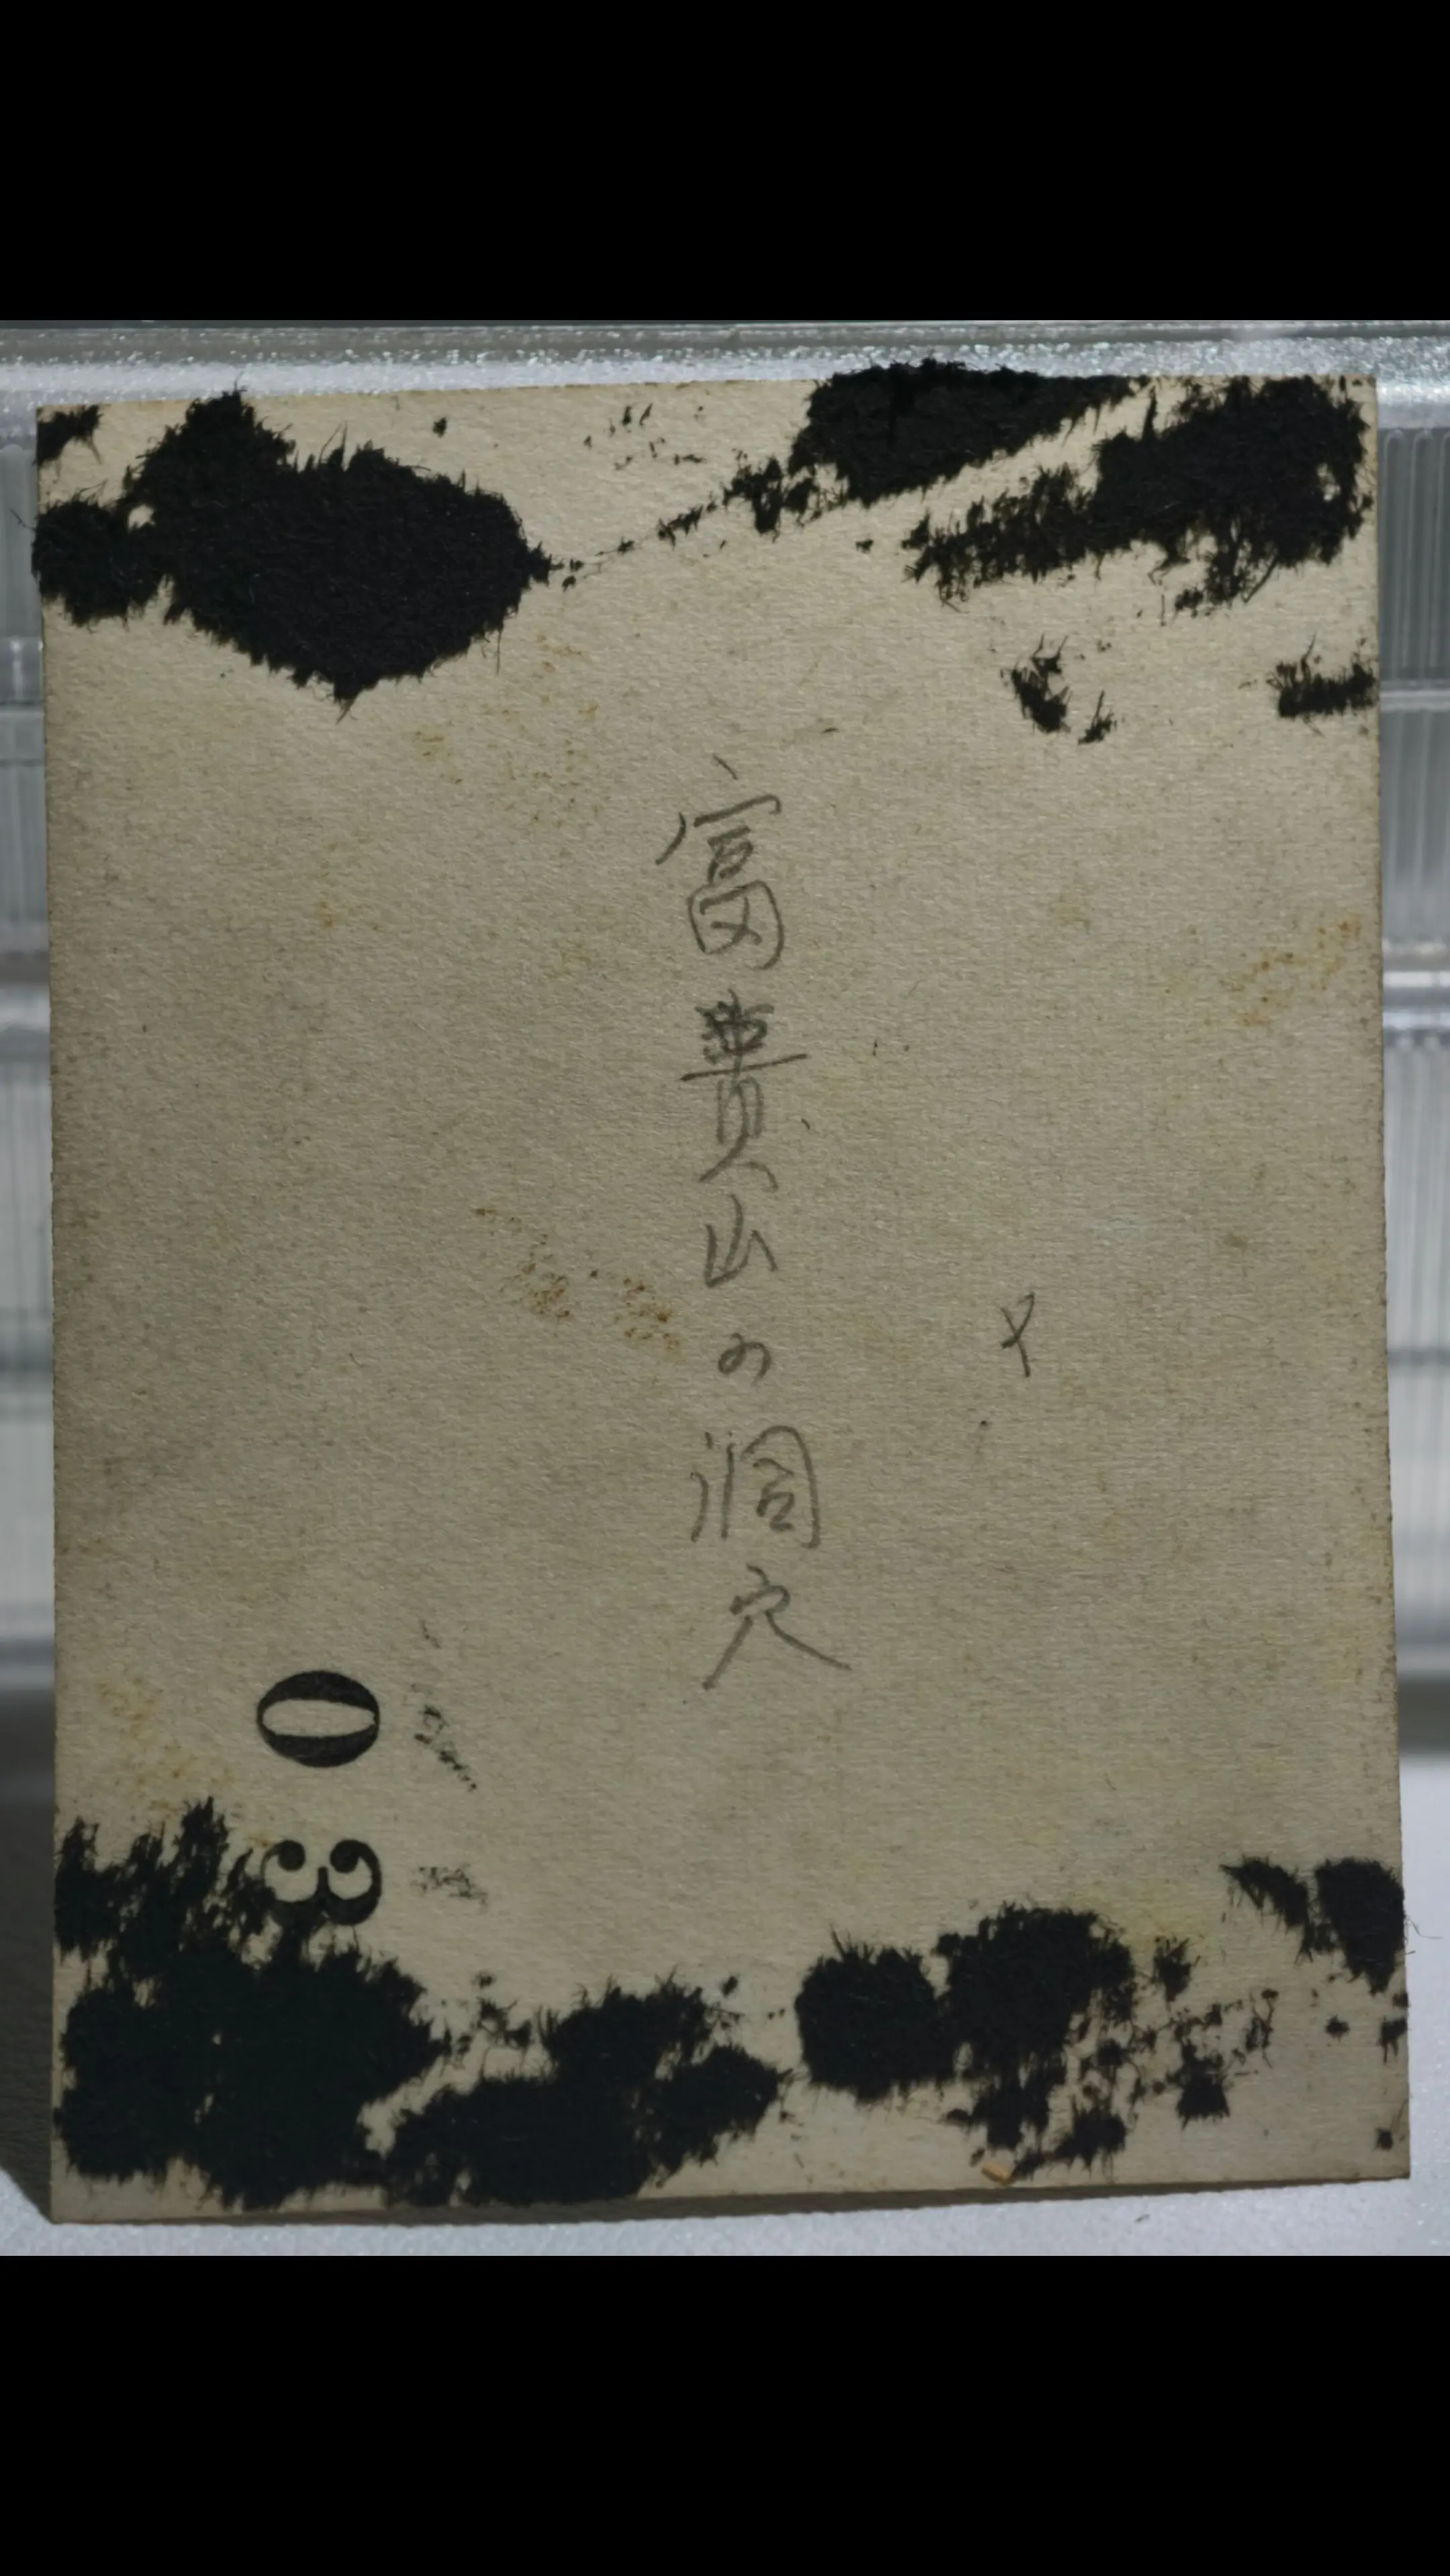 富貴山の洞穴
03